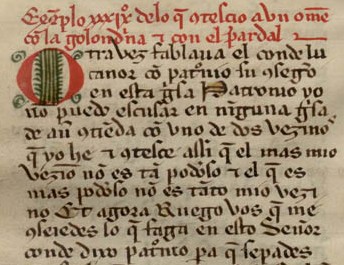 Exenplo xxxixº delo q̃ contesçio a vn ome
cõ la golondrína ⁊ con el pardal
Otra vez fablaua el conde lu
canor cõ patronio su consegeᵒ
en esta gᶦsa Patronio yo
nõ puedo escusar en ninguna gᶦsa
de aũ contienda cõ vno de dos vezinoˢ
q̃ yo he ⁊ contesçe assi q̃ el mas mio
vezino nõ es tã podoso ⁊ el q̃ es
mas podoso nõ es tãto mio vezi
no Et agora Ruego vos q̃ me
consejedes lo q̃ faga en esto Señor
conde dixo patronio pa q̃ sepades